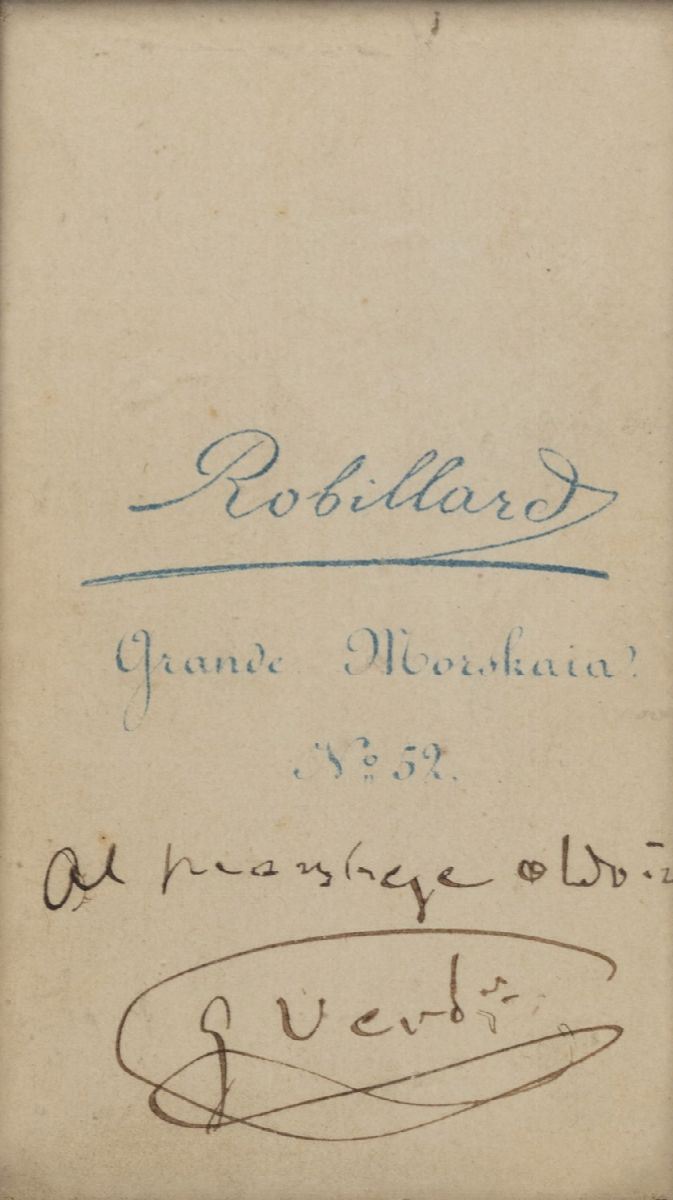 Robillard
Grande Morskaia
No 52.
Al
G Verdi